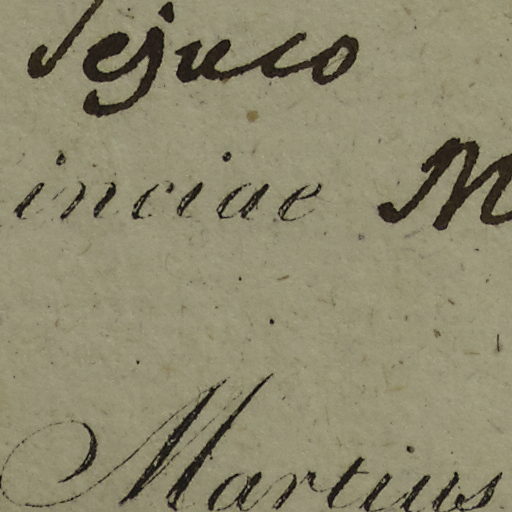 Tejuco
inciae M
Martius